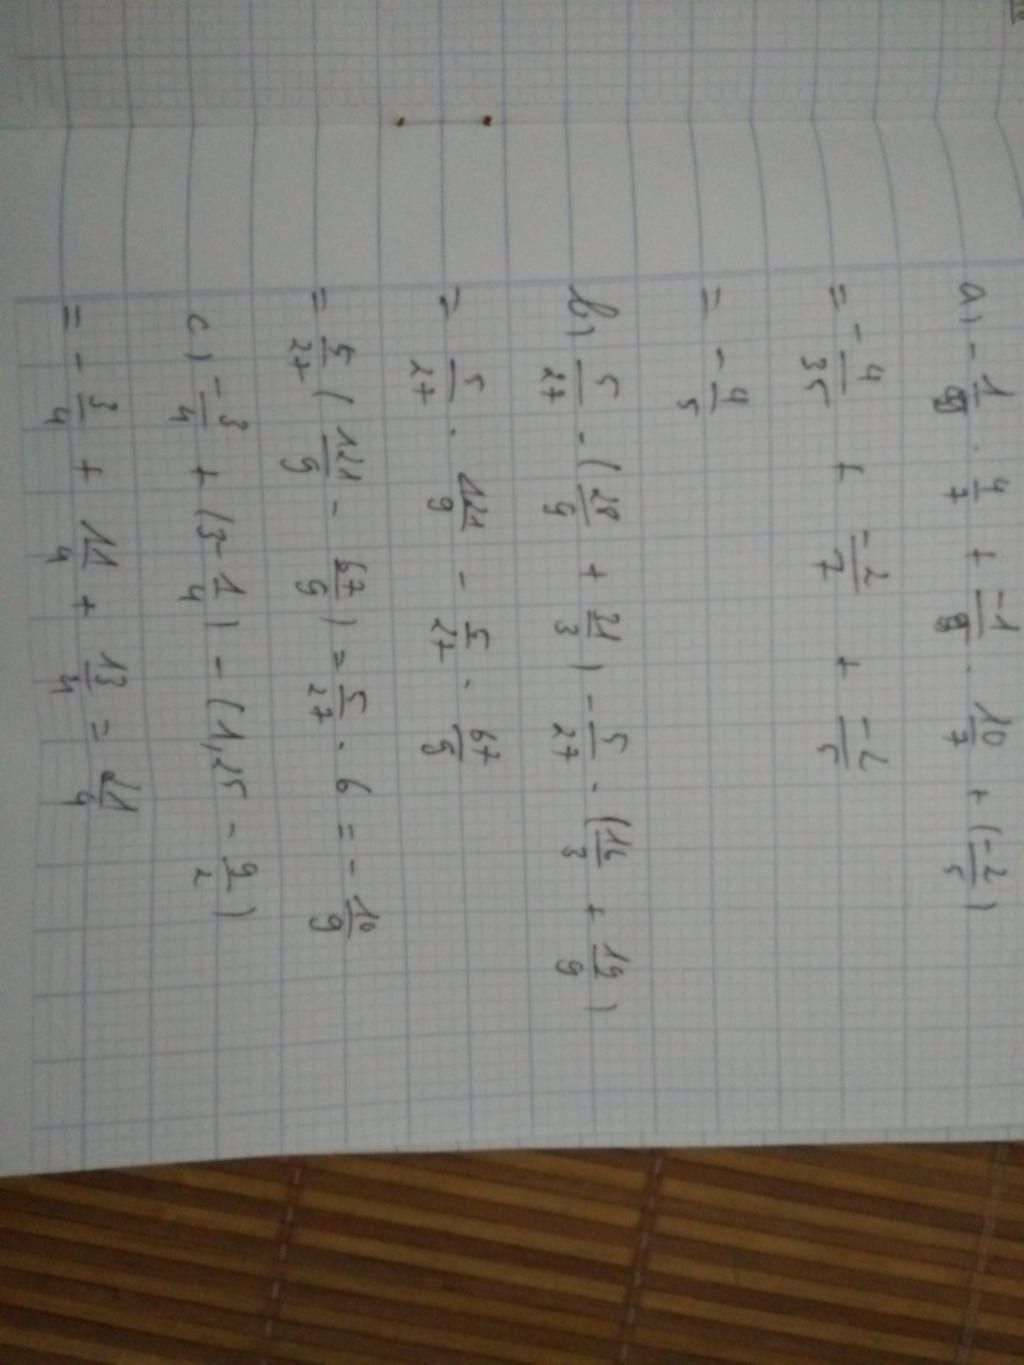 a) -1/5 . 4/7 + -1/5 . 10/7 + (-2/5)
= -4/35 + -2/7 + -2/5
= -4/5
b) 5/27 . (28/9 + 31/3) - 5/27 . (16/3 + 19/9)
= 5/27 . 121/9 - 5/27 . 67/9
= 5/27 (121/9 - 67/9) = 5/27 . 6 = -10/9
c) -3/4 + (3 - 1/4) - (1,25 - 9/2)
= -3/4 + 11/4 + 13/4 = 21/4